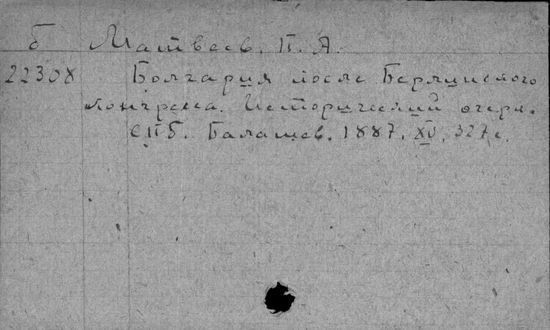 б Матвеев. П. А.
22308 Болгария после Берлинского
конгресса. Исторический очерк.
СПб. Балашев. 1887. XV, 327 с.